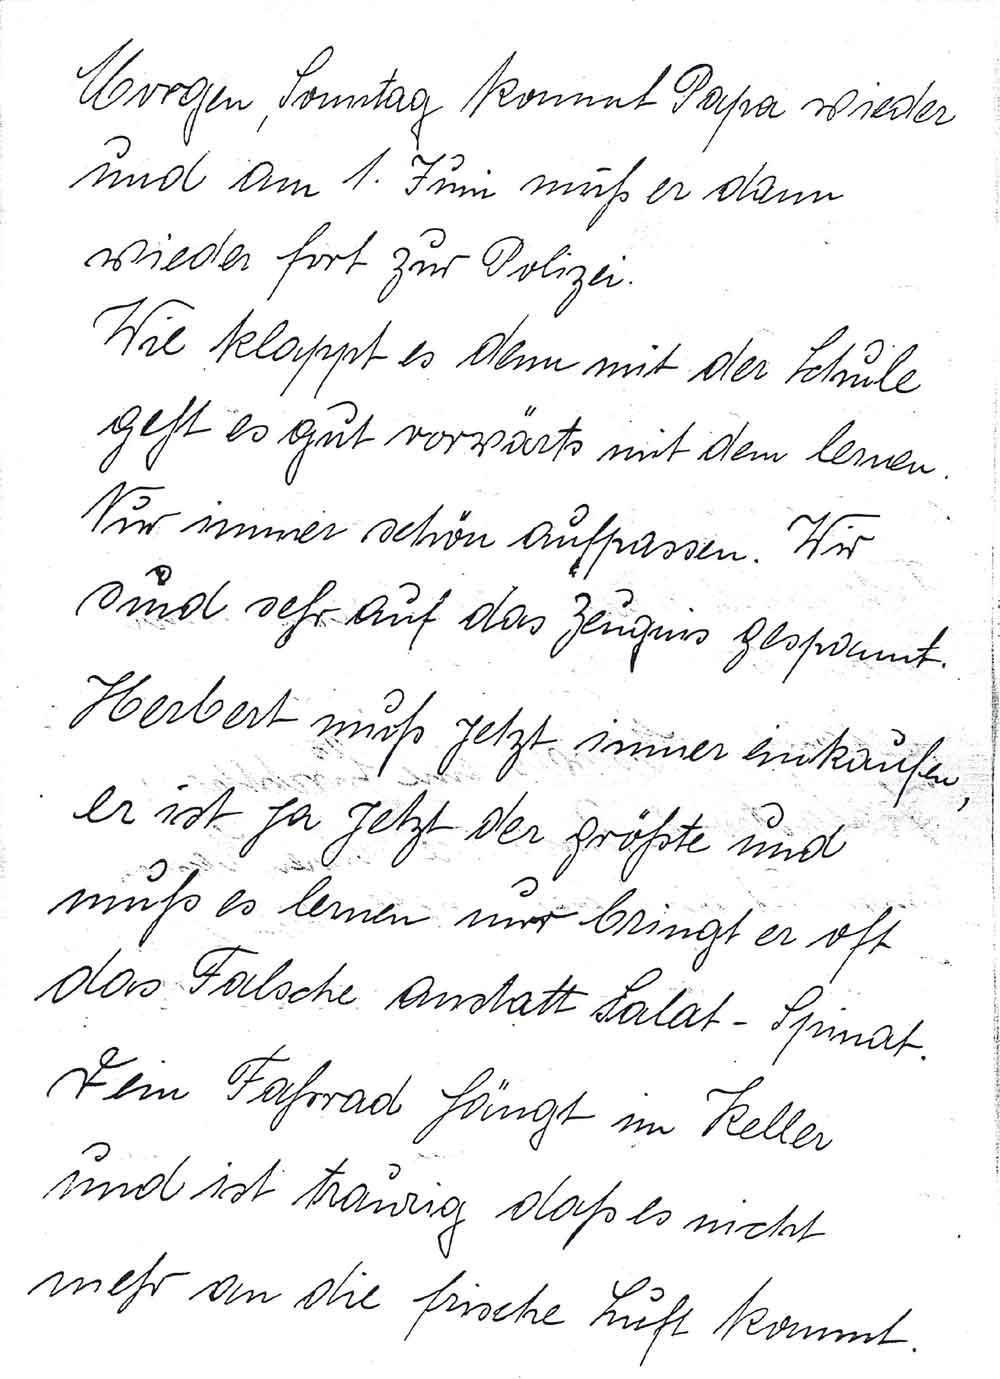 Morgen, Sonntag kommt Papa wieder
und am 1. Juni muß er dann
wieder fort zur Polizei.
Wie klappt es denn mit der Schule
geht es gut vorwärts mit dem lernen.
Nur immer schön aufpassen. Wir
sind sehr auf das Zeugnis gespannt.
Herbert muß jetzt immer einkaufen,
er ist ja jetzt der größte und
muß es lernen nur bringt er oft
das Falsche anstatt Salat - Spinat.
Dein Fahrrad hängt im Keller
und ist traurig daß es nicht
mehr an die frische Luft kommt.